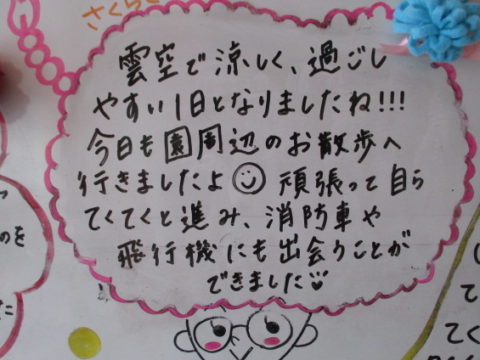 さくら
雲空で涼しく、過ごし
やすい1日となりましたね!!!
今日も園周辺のお散歩へ
行きましたよ☺ 頑張って自ら
てくてくと進み、消防車や
飛行機にも出会うことが
できました
のを
た
て
てく